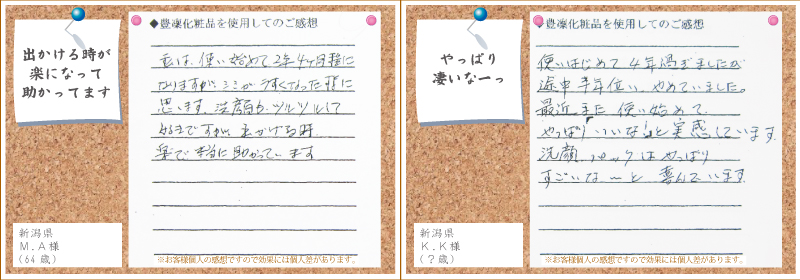 出かける時が
楽になって
助かってます
◆豊凜化粧品を使用してのご感想
私は、使い始めて2年4ヶ月程に
なりますが、シミがうすくなった様に
思います。洗顔も、ツルツルして
ますが、出かける時
楽で本当に助かっています
※お客様個人の感想ですので効果には個人差があります。
新潟県
M.A様
(64歳)
やっぱり
凄いなーっ
◆豊凜化粧品を使用してのご感想
使いはじめて4年過ぎましたが
途中半年位い、やめていました。
最近、また使い始めて
やっぱりいいな!と実感しています
洗顔、パックはやっぱり
すごいな〜と喜んでいます
※お客様個人の感想ですので効果には個人差があります。
新潟県
K.K様
(?歳)